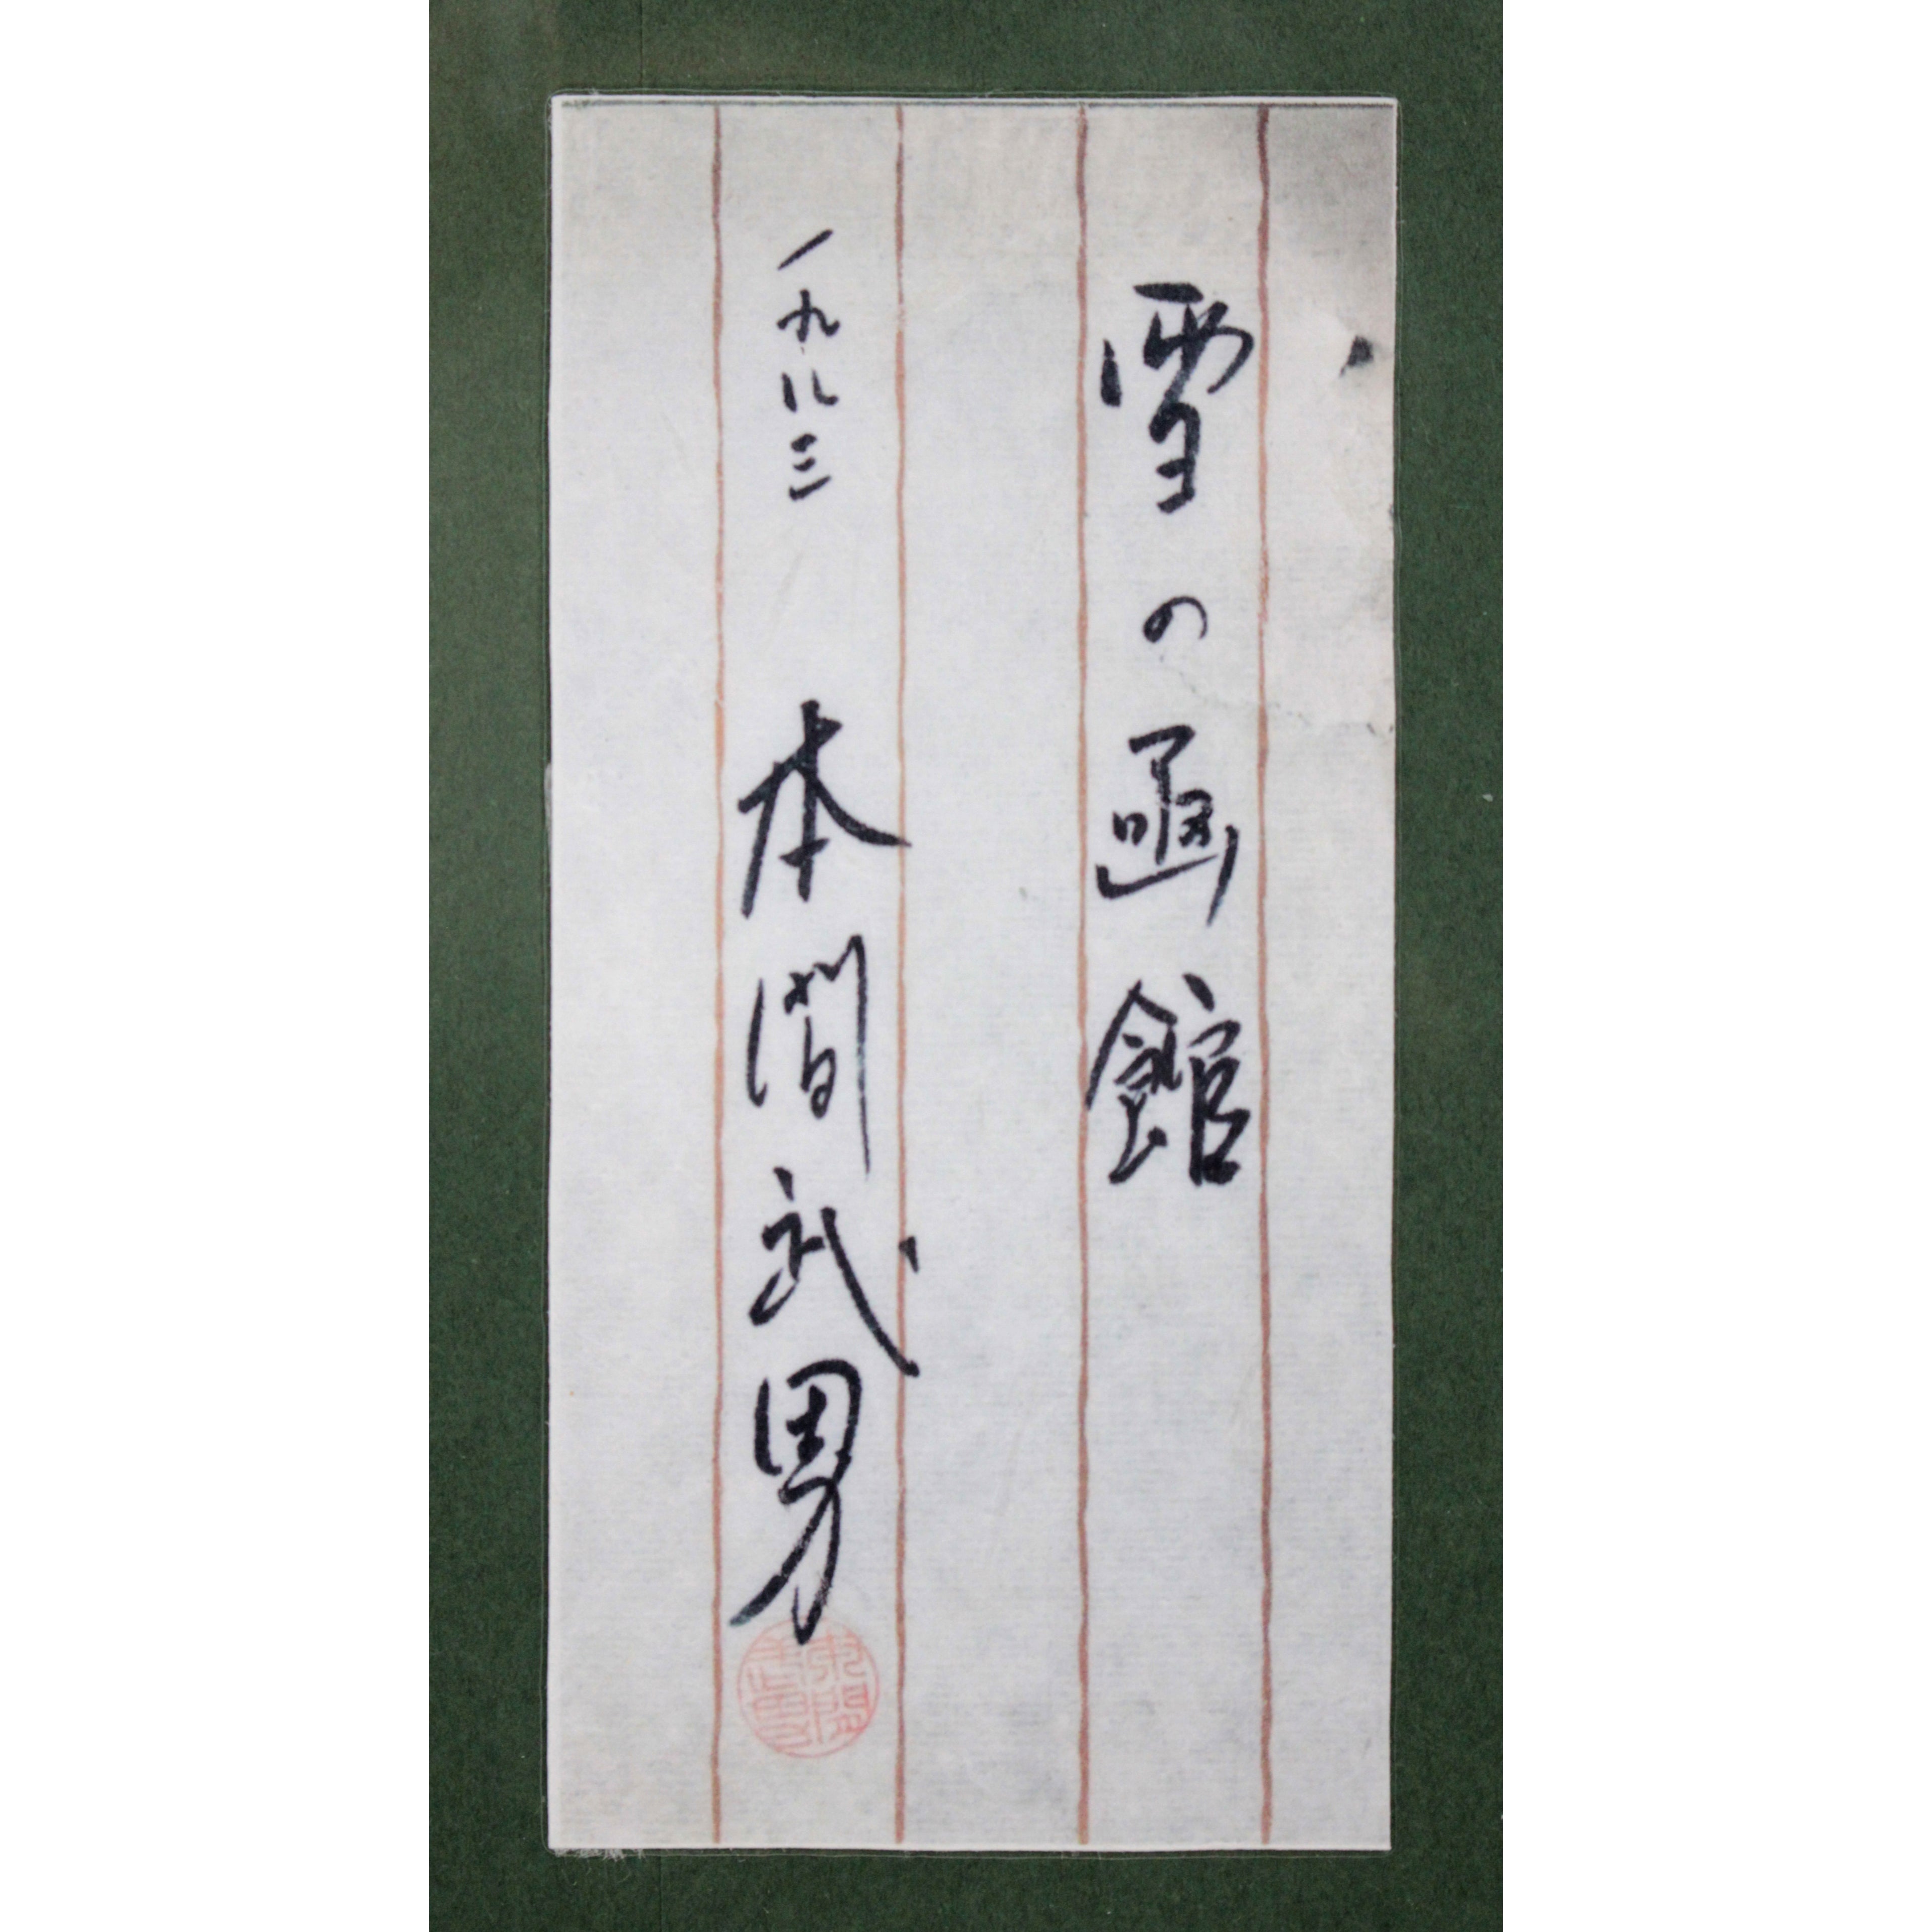 雪の函館
一九八三 本間武男